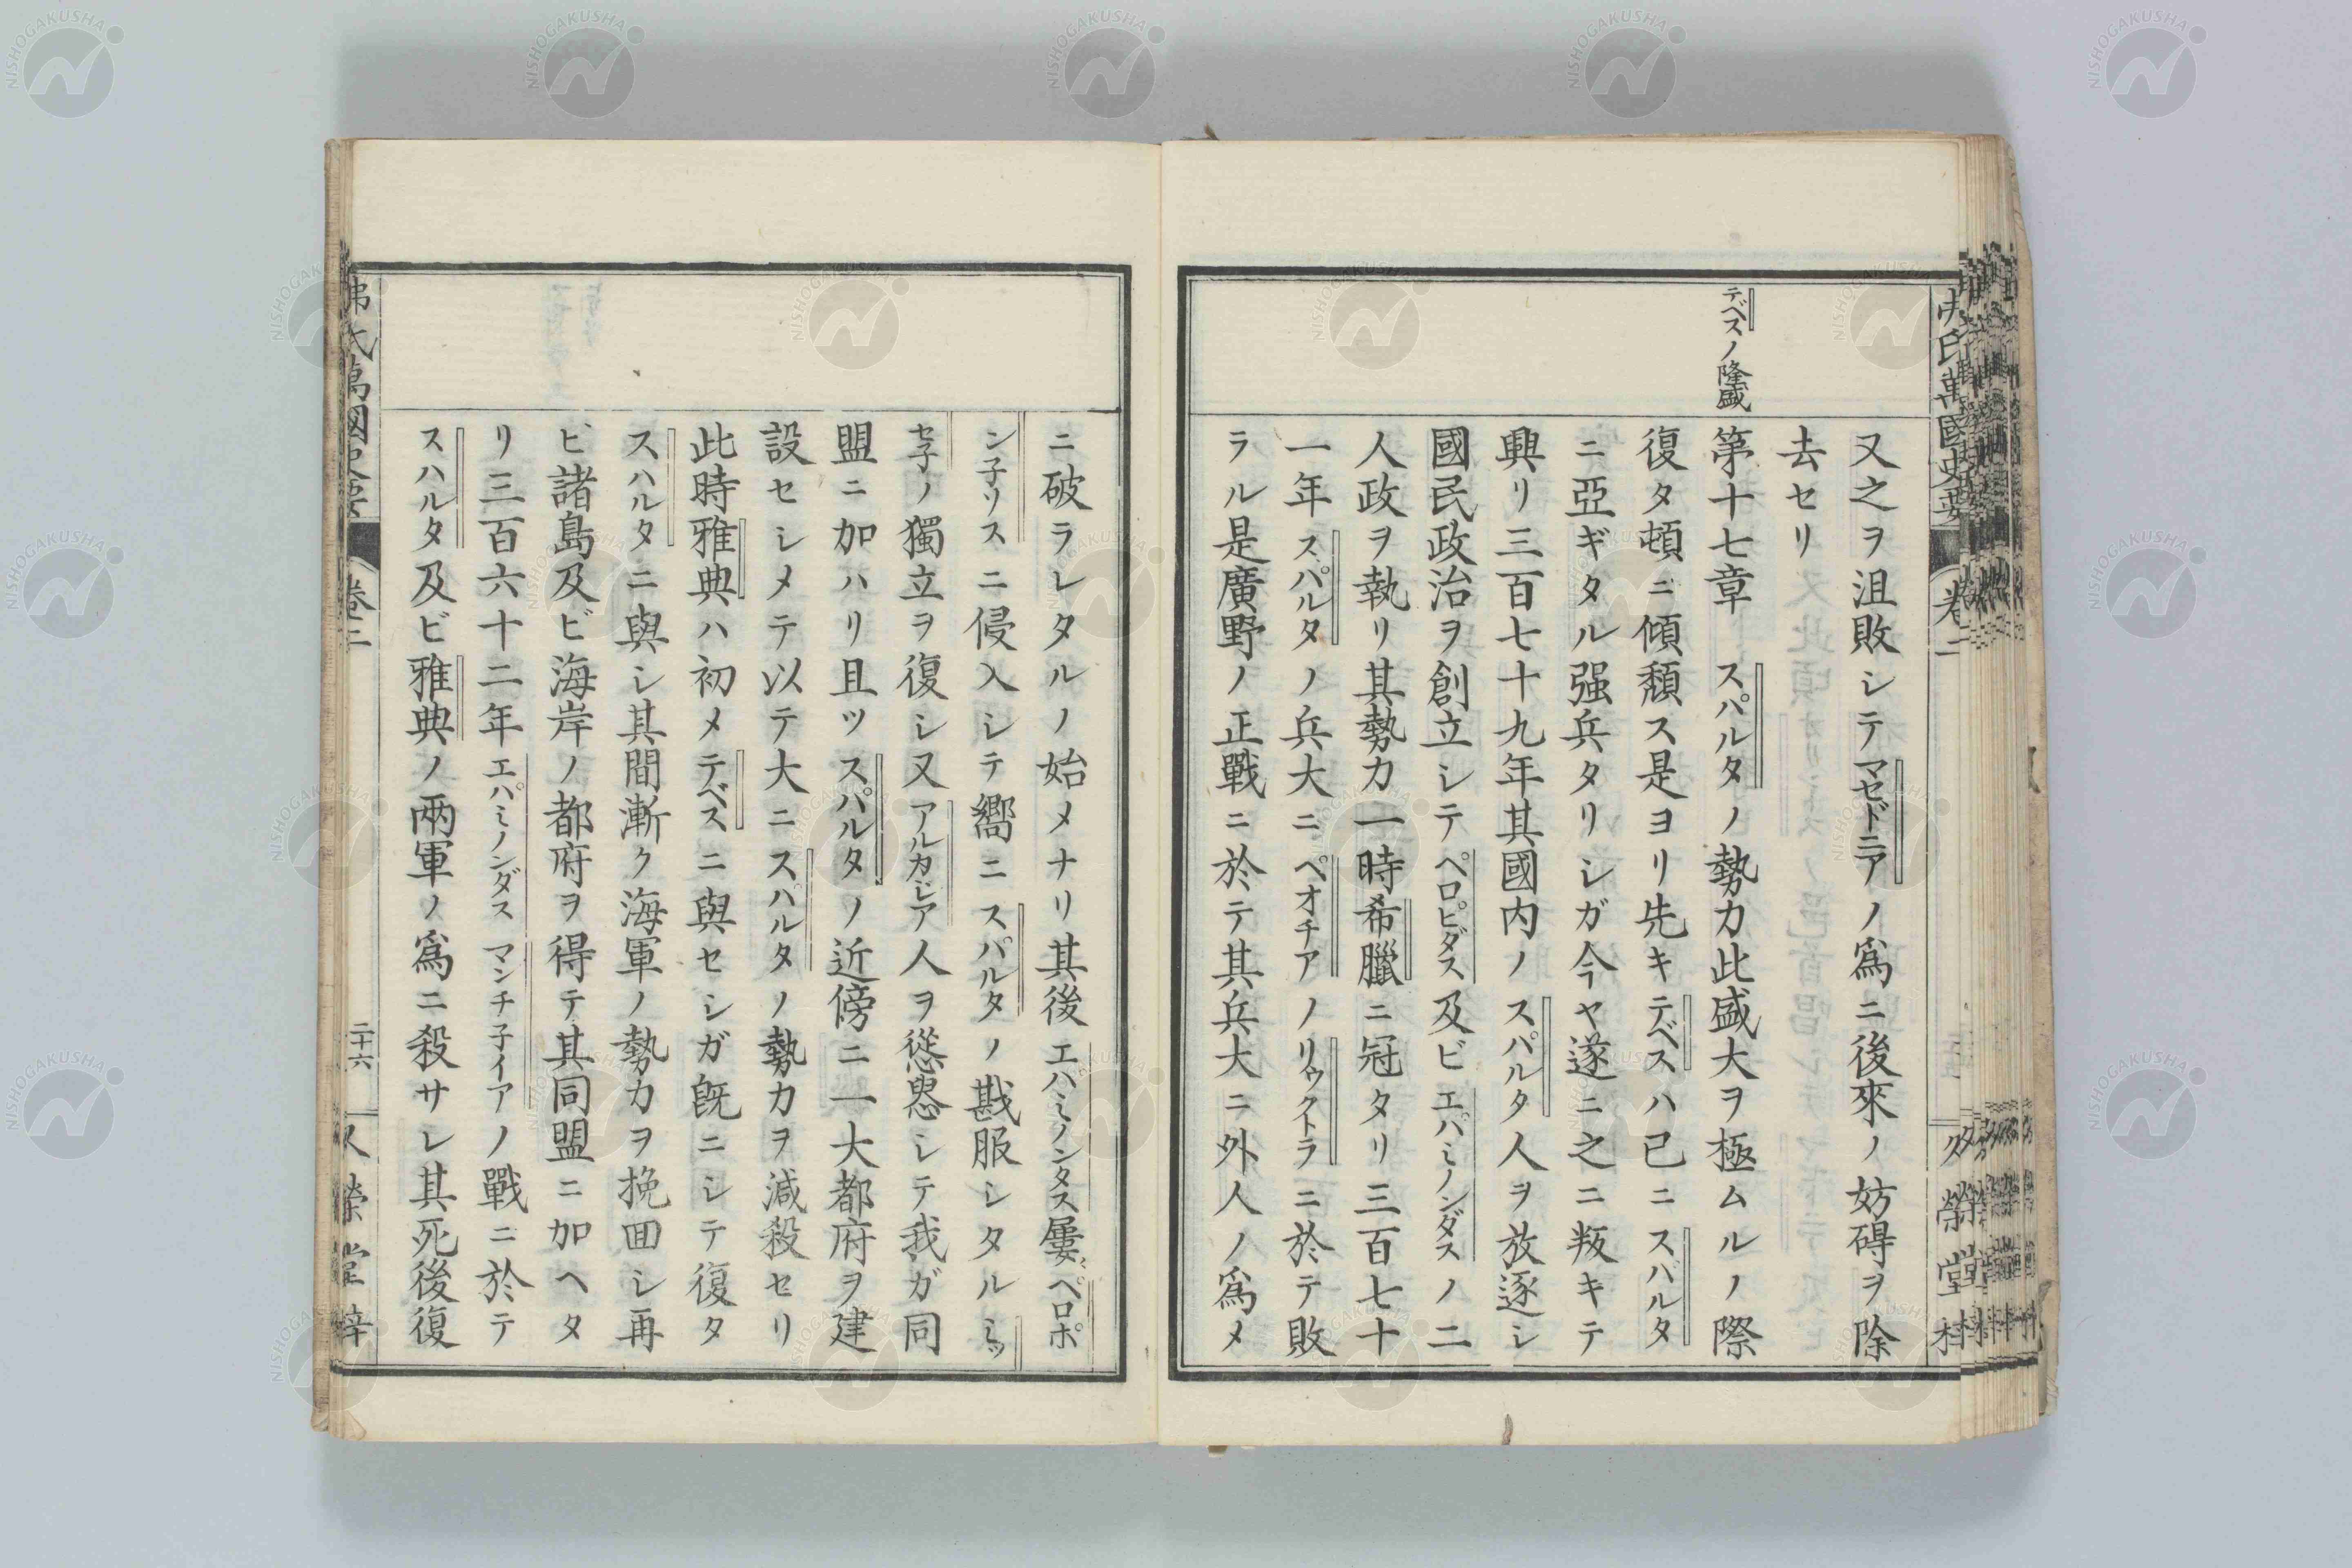 テベスノ隆盛
又之ヲ沮敗シテマセドニアノ爲ニ後來ノ妨碍ヲ除
去セリ
第十七章　スパルタノ勢力此盛大ヲ極ムルノ際
復タ頓ニ傾頽ス是ヨリ先キテベスハ已ニスパルタ
ニ亞ギタル强兵タリシガ今ヤ遂ニ之ニ叛キテ
興リ三百七十九年其國内ノスパルタ人ヲ放逐シ
國民政治ヲ創立シテペロピダス及ビエパミノンダスノ二
人政ヲ執リ其勢力一時希臘ニ冠タリ三百七十
一年スパルタノ兵大ニベオチアノリウクトラニ於テ敗
ラル是廣野ノ正戰ニ於テ其兵大ニ外人ノ爲メ
ニ破ラレタルノ始メナリ其後エパミノンダス屢〻ペロポ
ン子ソスニ侵入シテ嚮ニスパルタノ戡服シタルミッ
セ子ノ獨立ヲ復シ又アルカヂア人ヲ慫慂シテ我ガ同
盟ニ加ハリ且ツスパルタノ近傍ニ一大都府ヲ建
設セシメテ以テ大ニスパルタノ勢力ヲ減殺セリ
此時雅典ハ初メテベスニ與セシガ旣ニシテ復タ
スハルタニ與シ其間漸ク海軍ノ勢力ヲ挽回シ再
ビ諸島及ビ海岸ノ都府ヲ得テ其同盟ニ加ヘタ
リ三百六十二年エパミノンダスマンチ子イアノ戰ニ於テ
スハルタ及ビ雅典ノ兩軍ノ爲ニ殺サレ其死後復
萬國史要
卷二
二十六